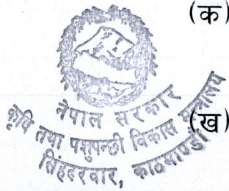 (क)
नेपाल सरकार
कृषि तथा पशुपन्छी विकास मन्त्रालय
(ख)
सिंहदरबार, काठमाण्डौं